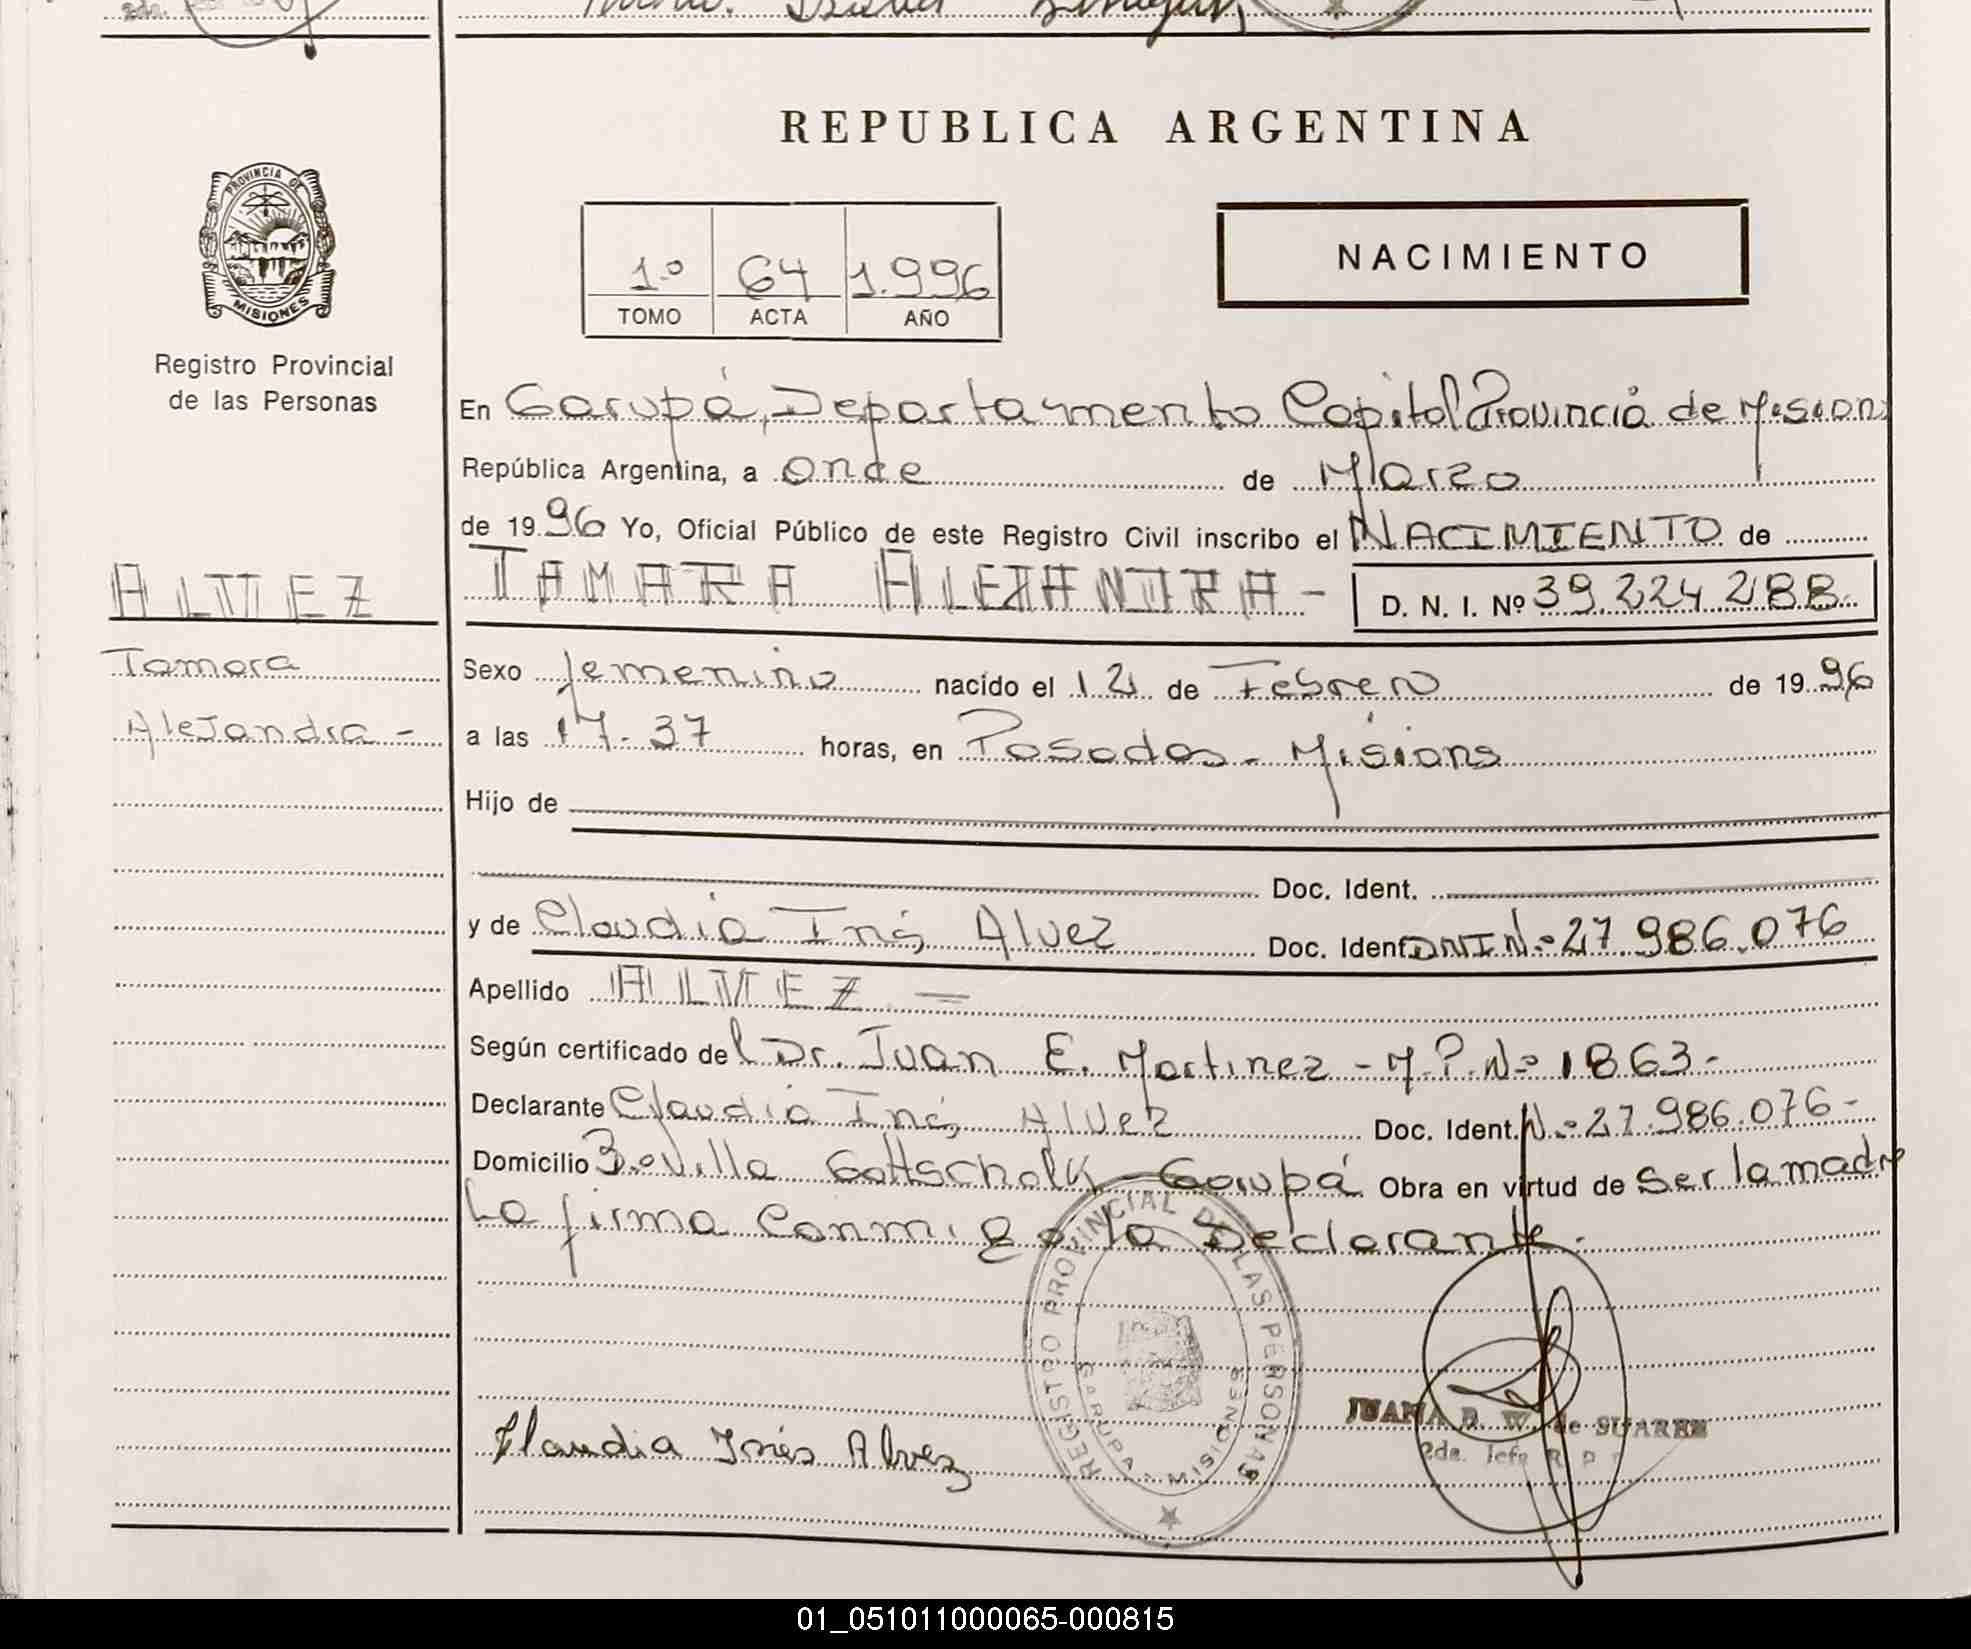 REPUBLICA ARGENTINA
PROVINCIA DE
MISIONES
Registro Provincial
de las Personas
NACIMIENTO
1º 64 1.996
TOMO ACTA AÑO
En Garupá, Departamento Capital Provincia de Misions
República Argentina, a onde de Marzo
de 1996 Yo, Oficial Público de este Registro Civil inscribo el NACIMIENTO de
ALVEZ
TAMARA ALEJANDRA - D. N. I. Nº 39.224.288.
Tamara
Alejandra -
Sexo femenino nacido el 12 de Febrero de 1996
a las 17-37 horas, en Posadas - Misions
Hijo de
Doc. Ident.
y de Claudia Inés Alvez Doc. Ident. DNI Nº 27.986.076
Apellido ALVEZ =
Según certificado del Dr. Juan E. Martinez - M.P. Nº 1863-
Declarante Claudia Inés Alvez Doc. Ident. Nº 27.986.076-
Domicilio Bº Villa Gottschalk - Garupá Obra en virtud de ser la madre
La firma Conmigo la Declarante.
REGISTRO PROVINCIAL DE LAS PERSONAS
GARUPA - MISIONES
JUANA B. W. de SUAREZ
2da. Jefe R. P.
Claudia Inés Alvez
01_051011000065-000815